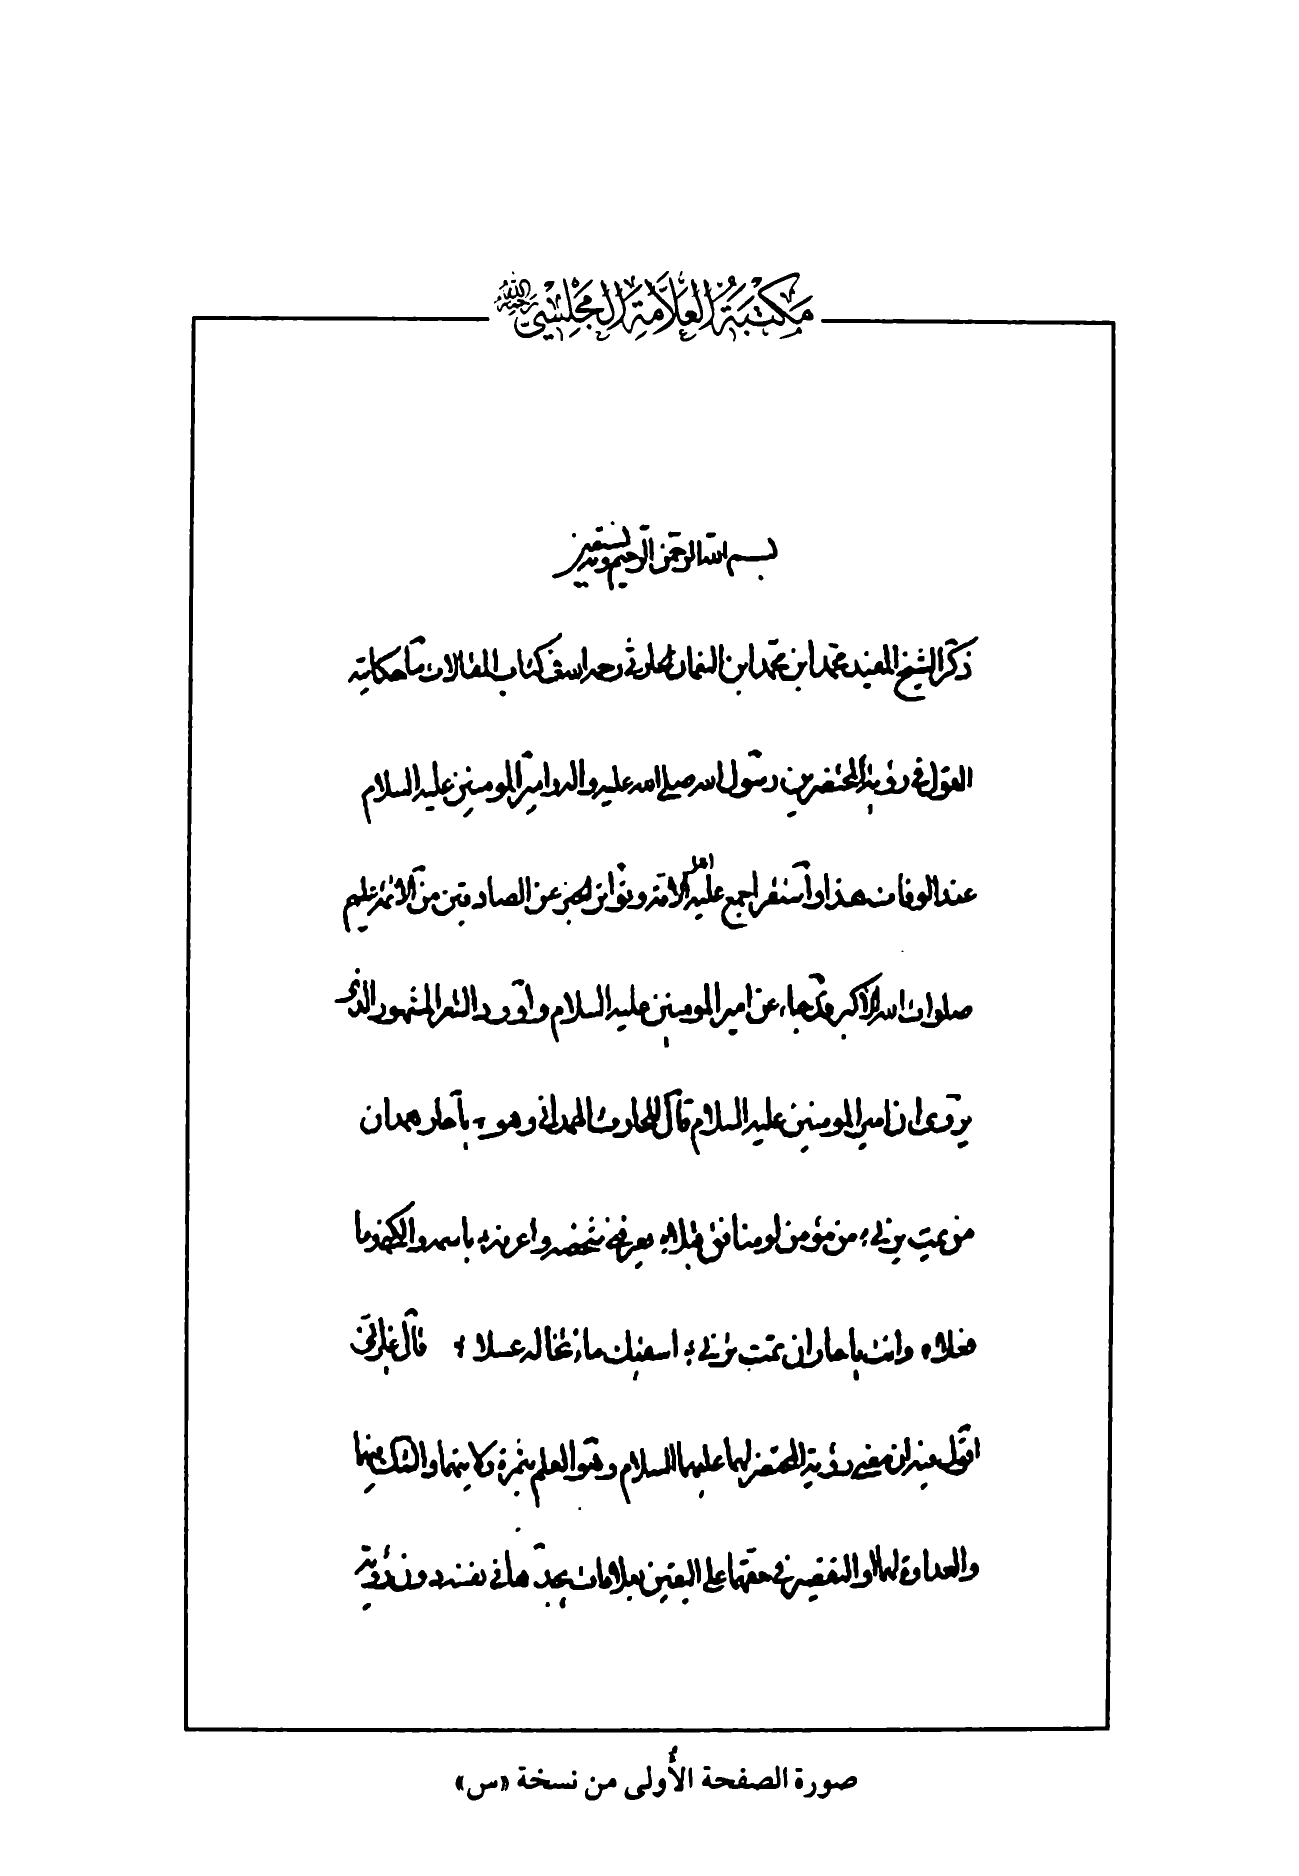 مكتبة العلامة المجلسي رحمه الله
بسم الله الرحمن الرحيم وبه نستعين
ذكر الشيخ المفيد محمد ابن محمد ابن النعمان الحارثي رحمه الله في كتاب المقالات ما حكايته
القول في رؤية المحتضرين رسول الله صلى الله عليه واله وامير المومنين عليه السلام
عند الوفات هذا واستقر اجمع عليه اهل الامامة وتواتر الخبر عن الصادقين من الائمة عليهم
صلوات الله الاكبر وقد جاء عن امير المومنين عليه السلام و اورد الشعر المشهور الذي
يروى ان امير المومنين عليه السلام قال للحارث الهمداني وهو يا حار همدان
من يمت يرني من مؤمن او منافق قبلا يعرفني شخصه واعرفه باسمه والكنى وما
فعلا وانت يا حار ان تمت ترني اسقيك ماء تخاله عسلا قال غير اني
اقول فيه ان معنى رؤية المحتضر لهما عليهما السلام وهو العلم بثمرة ولايتهما والشك فيهما
والعداوة لهما او التقصير في حقهما على اليقين بعلامات يجدها في نفسه دون رؤية
صورة الصفحة الأولى من نسخة «س»